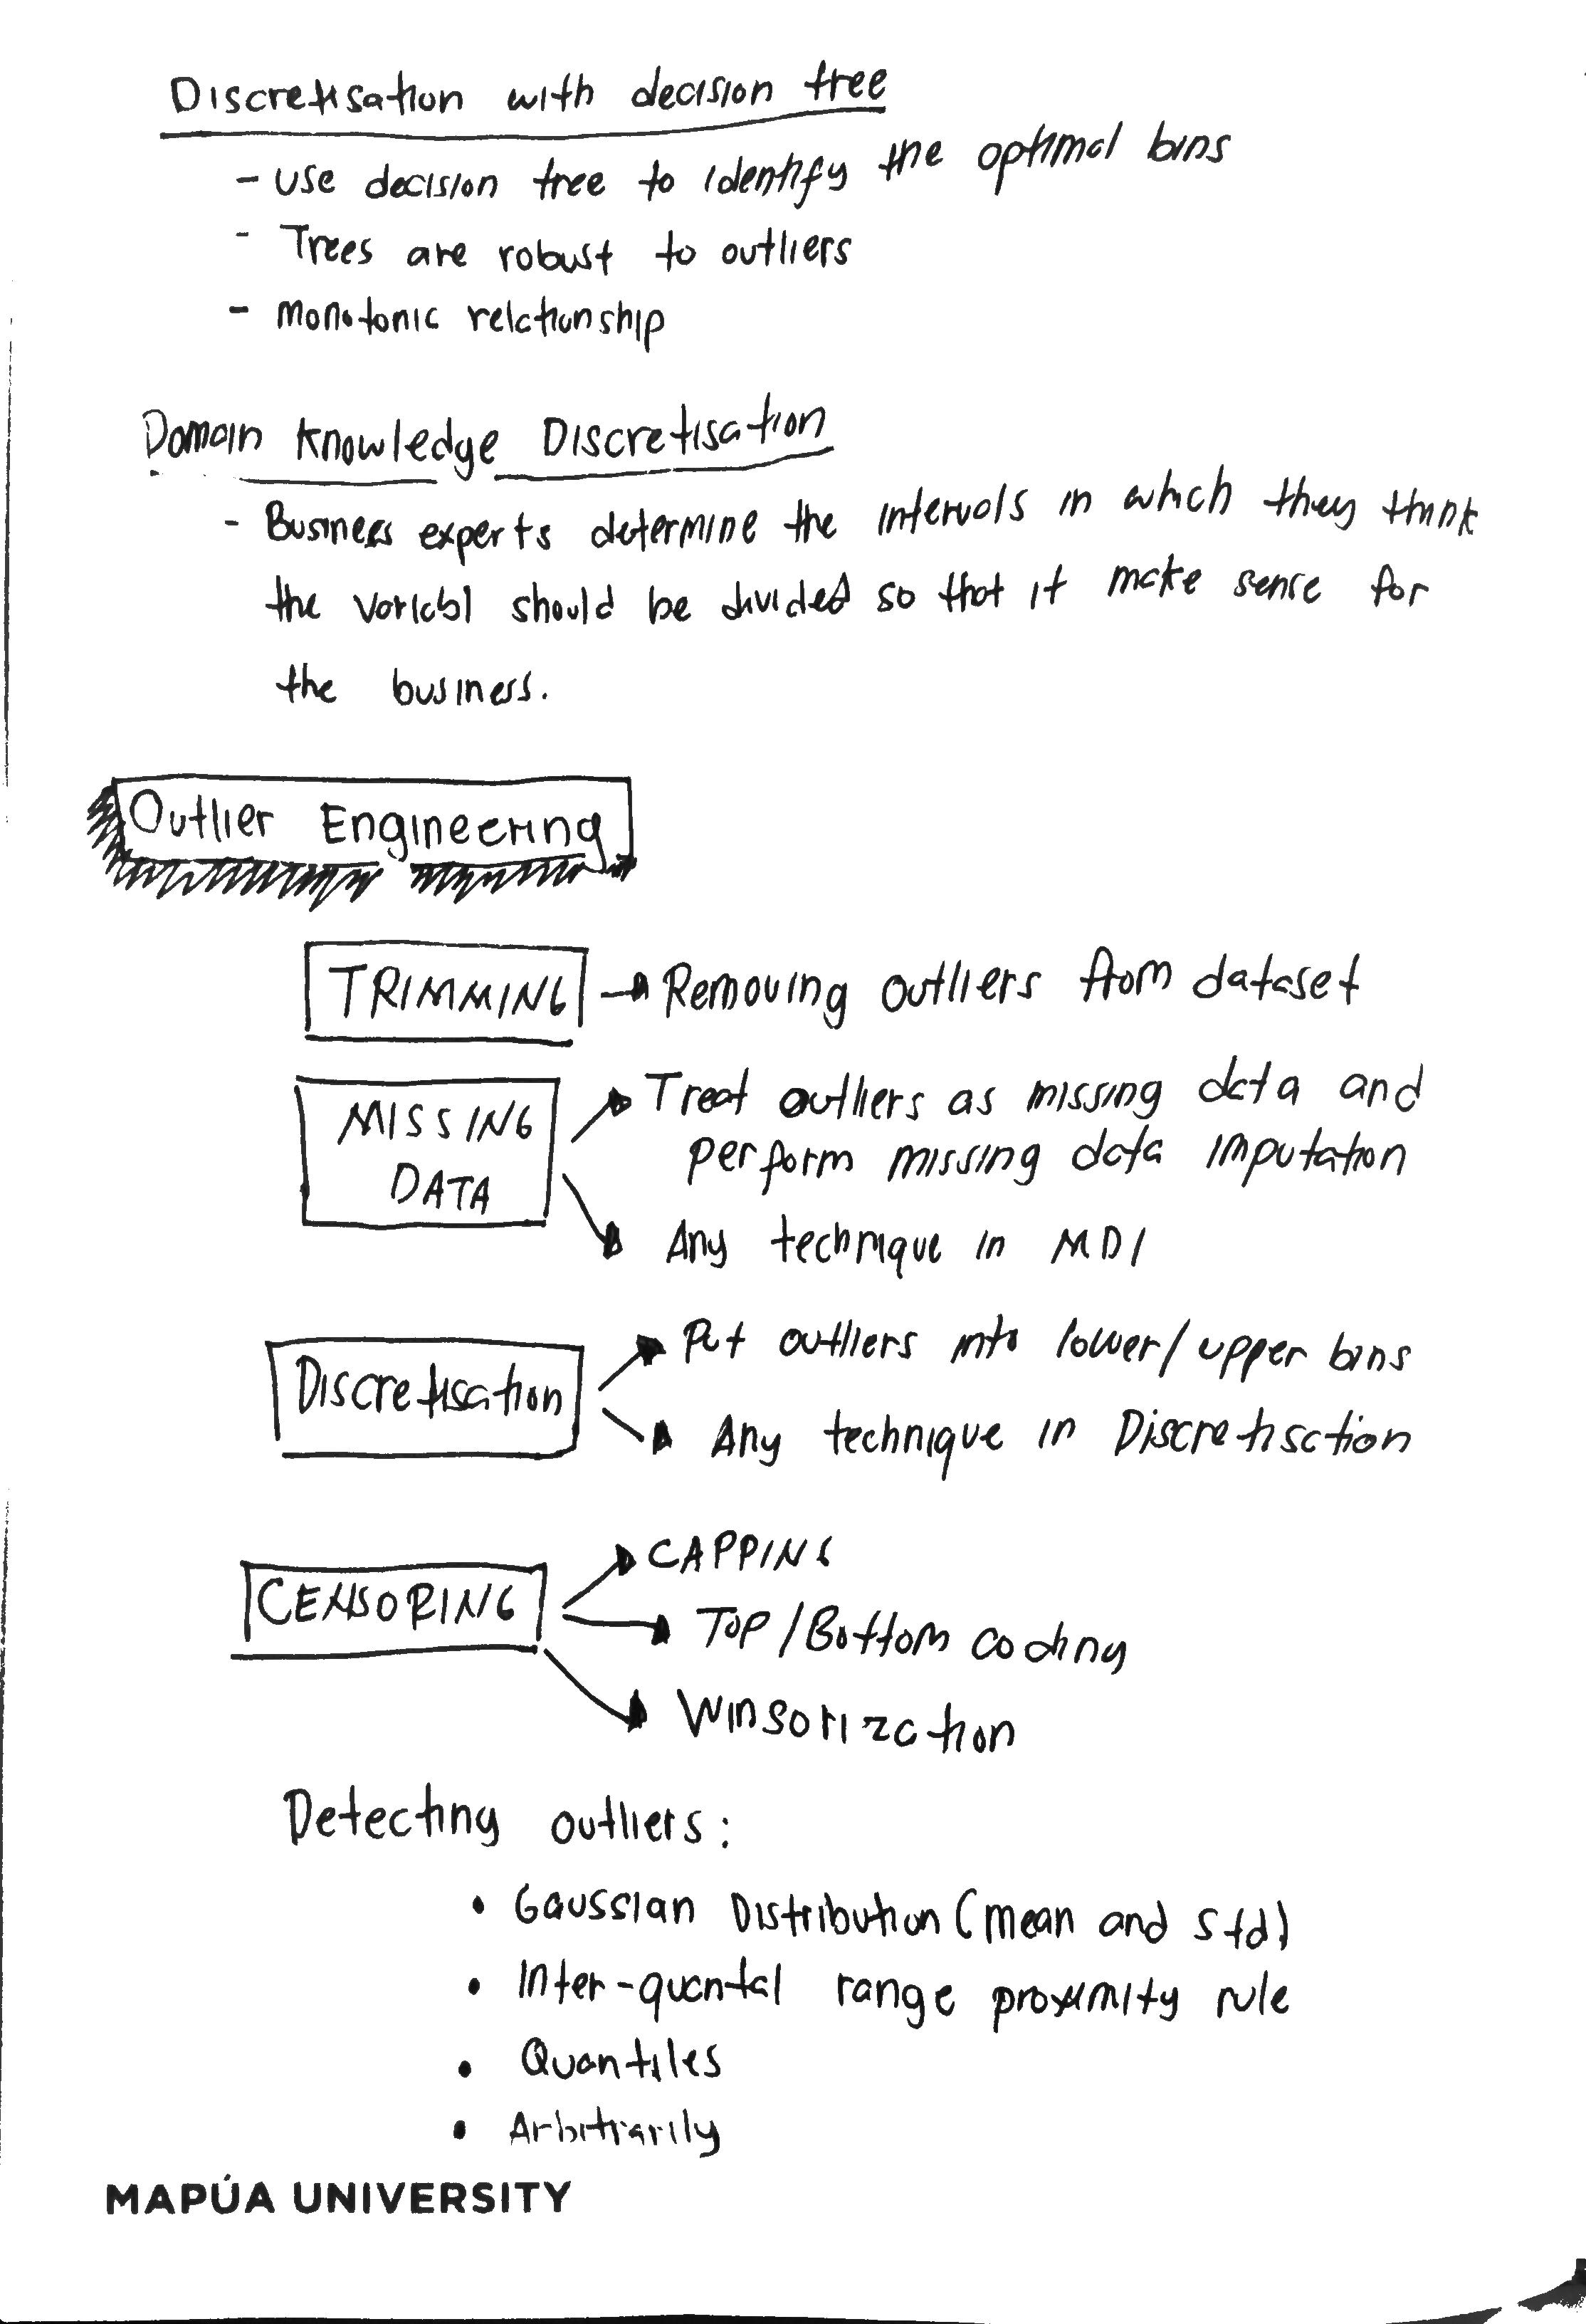 Discretisation with decision tree
- use decision tree to identify the optimal bins
- Trees are robust to outliers
- monotonic relationship
Domain knowledge Discretisation
- Business experts determine the intervals in which they think
the variabl should be divided so that it make sense for
the business.
Outlier Engineering
TRIMMING → Removing outliers from dataset
MISSING DATA
Treat outliers as missing data and
perform missing data imputation
Any technique in MDI
Discretisation
Put outliers into lower/upper bins
Any technique in Discretisation
CENSORING
CAPPING
Top/Bottom coding
Winsorization
Detecting outliers:
• Gaussian Distribution (mean and std)
• Inter-quantal range proximity rule
• Quantiles
• Arbitrarily
MAPÚA UNIVERSITY